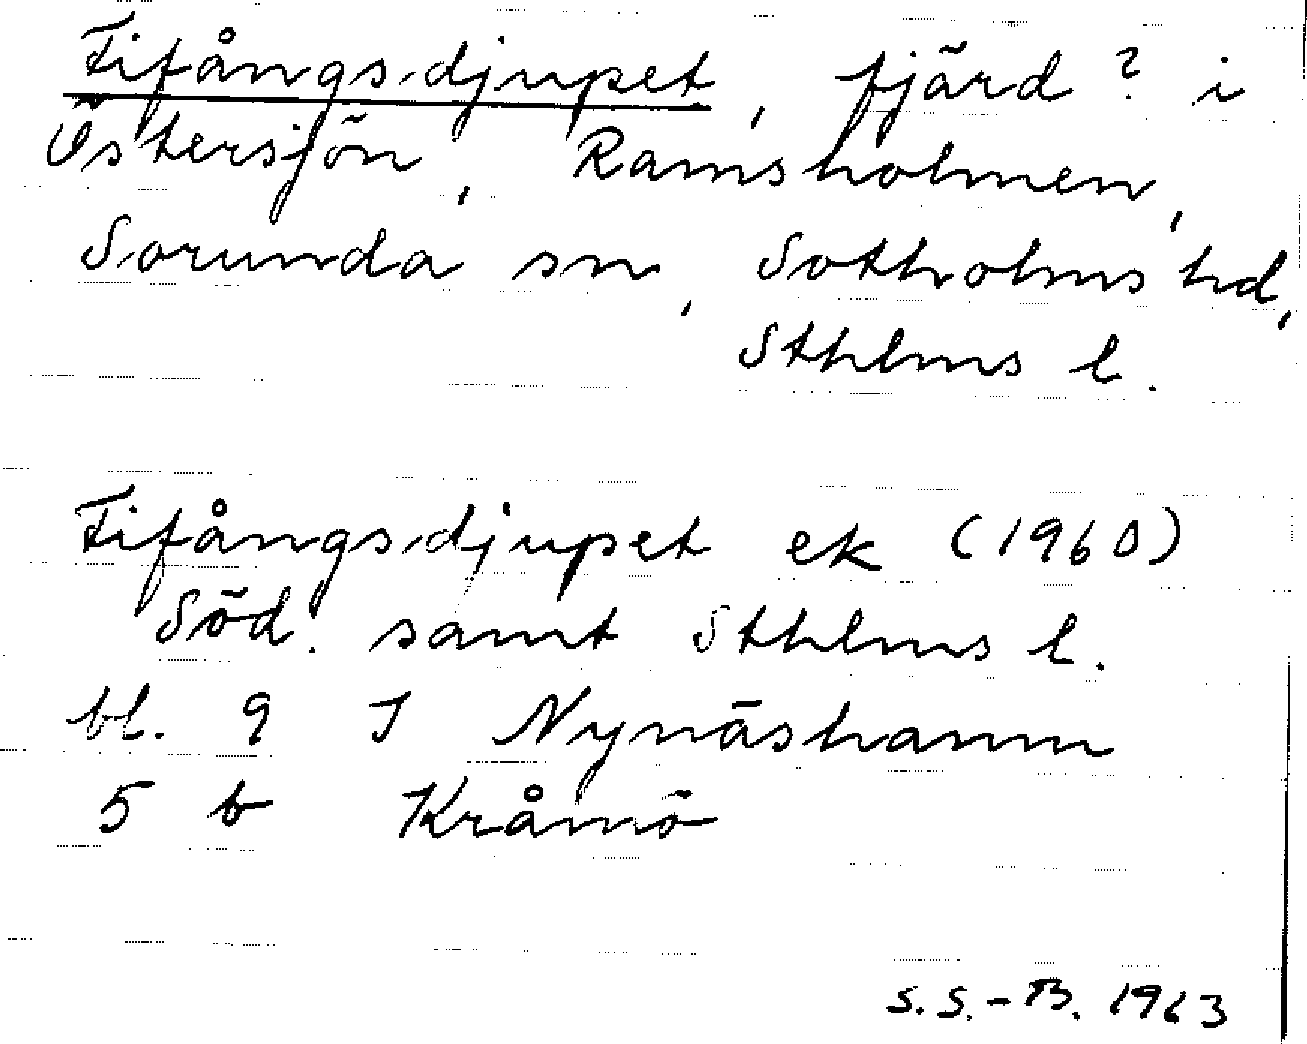 Fifångsdjupet, fjärd? i
Östersjön, Ramsholmen,
Sorunda sn, Sotholms hd,
Sthlms l.
Fifångsdjupet ek (1960)
Söd. samt Sthlms l.
bl. 9 I Nynäshamn
5 b Kråmö
S.S.-B. 1963